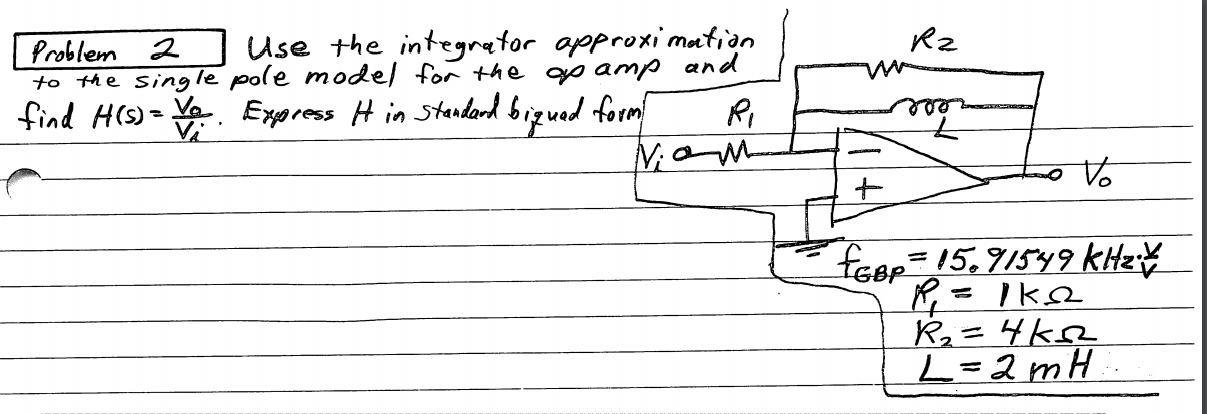 Problem 2 Use the integrator approximation
to the single pole model for the op amp and
find H(s) = Vo/Vi. Express H in standard biquad form
R2
L
R1
Vi
−
+
Vo
fGBP = 15.91549 kHz·V/V
R1 = 1kΩ
R2 = 4kΩ
L = 2mH